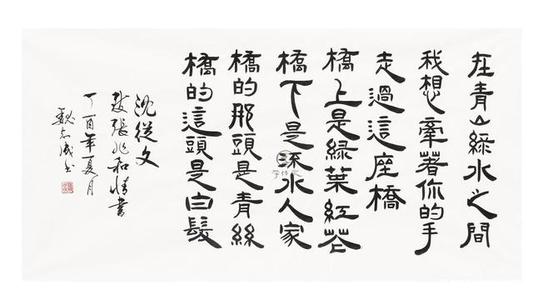 在青山綠水之間
我想牽著你的手
走過這座橋
橋上是綠葉紅花
橋下是流水人家
橋的那頭是青絲
橋的這頭是白髮
沈從文
致張兆和情書
丁酉年夏月